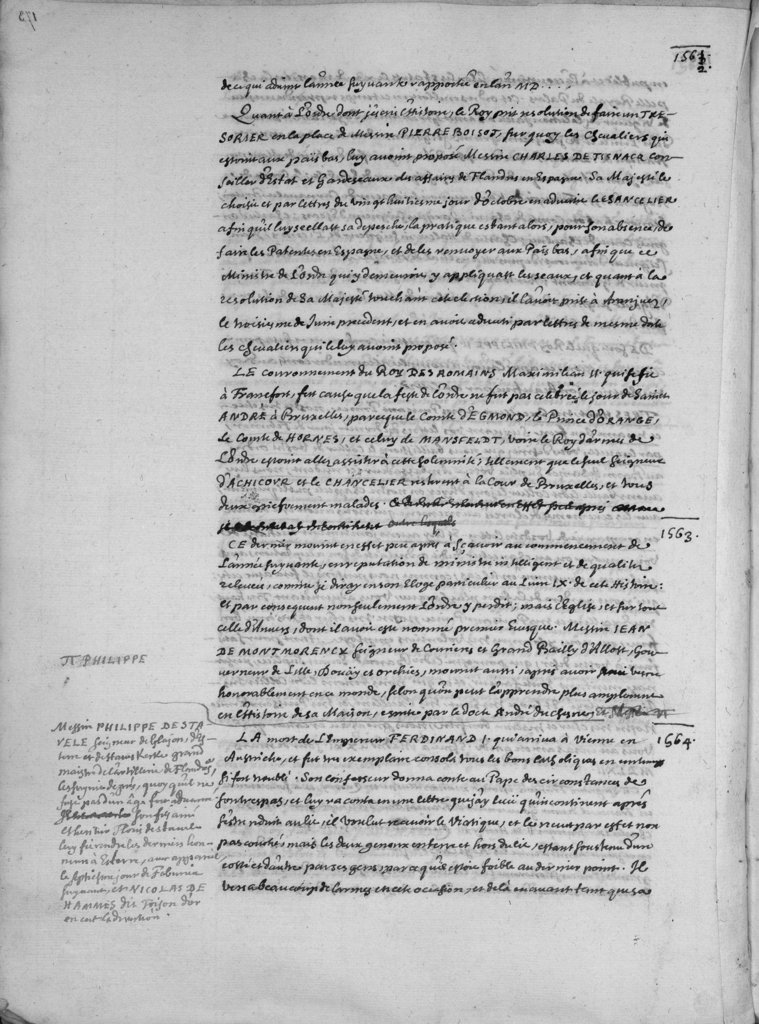 1561
2
de ce qui advint l'année suyvante rapportée en l'an MD....
Quant à l'ordre dont j'escri l'Histoire, le Roy prit resolution de faire un TRE-
SORIER en la place de Messire PIERRE BOISOT, sur quoy les Chevaliers qui
estoint aux païs bas, luy avoint proposé Messire CHARLES DE TISNACQ Con-
seiller d'Estat et Gardeseaux des affaires de Flandres en Espagne. Sa Majesté le
choisit et par lettres du vingt huitiesme jour d'Octobre en advertit le CANCELIER
afin qu'il luy seellast sa depesche, la pratique estant alors, pour son absence, de
faire les Patentes en Espagne, et de les renvoyer aux Païs bas, afin que ce
Ministre de l'ordre qui y demeuroit y appliquast les seaux, et quant à la
resolution de Sa Majesté touchant cete election, il l'avoit prise à Aranjuez,
le troisiesme de Juin precedent, et en avoit adverti par lettres de mesme date
les chevaliers qui le luy avoint proposé.
LE couronnement du ROY DES ROMAINS Maximilian II. qui se fit
à Francfort, fut cause que la feste de l'ordre ne fut pas celebrée le jour de Saint
ANDRÉ à Bruxelles, parce que le Comte d'EGMOND, le Prince d'ORANGE,
le Comte de HORNES, et celuy de MANSFELDT, voire le Roy d'armes de
l'Ordre estoint allez assister à cette solemnité; tellement que le seul Seigneur
d'ACHICOUR et le CHANCELIER resterent à la Cour de Bruxelles, et tous
deux griefvement malades.
1563.
CE dernier mourut en effet peu après à sçavoir au commencement de
l'année suyvante, en reputation de ministre intelligent et de qualitez
relevées, comme je diray en son Eloge particulier au Livre IX. de cete Histoire:
et par consequent non seulement l'Ordre y perdit; mais l'Eglise, et sur tout
celle d'Anvers, dont il avoit esté nommé premier Evesque. Messire JEAN
DE MONTMORENCY Seigneur de Courieres et Grand Bailly d'Allost, Gou-
verneur de Lille, Douäy et Orchies, mourut aussi, après avoir vescu
honorablement en ce monde, selon qu'on peut l'apprendre plus amplement
en l'Histoire de sa Maison, escrite par le docte André du Chesne.
π PHILIPPE
Messire PHILIPPE DE STA
VELE seigneur de Glajon,
et d'Estavelkerke grand
maistre de l'artillerie de Flandres,
quoy qu'il ne
fust pas d'un âge fort advancé
son fils aisné
et heritier Floris de Stavele
luy fit rendre les derniers hon-
neurs à Esterre,
le septiesme jour de Febvrier
suyvant, et NICOLAS DE
HAMMES dit Toison d'or
en eut la direction.
1564.
LA mort de l'Empereur FERDINAND I. qui arriva à Vienne en
Austriche, et fut tres exemplaire consola tous les bons catholiques en un temps
si fort troublé. Son confesseur donna conte au Pape des circonstances de
son trespas, et luy raconta en une lettre que j'ay leüe qu'incontinent après
s'estre reduit au lit, il voulut recevoir le Viatique, et le receut par effet non
pas couché; mais les deux genoux en terre et hors du lit, estant soustenu d'un
costé et d'autre par ses gens, parce qu'il estoit foible au dernier point. Il
versa beaucoup de larmes en cete occasion, et de là en avant tant que sa